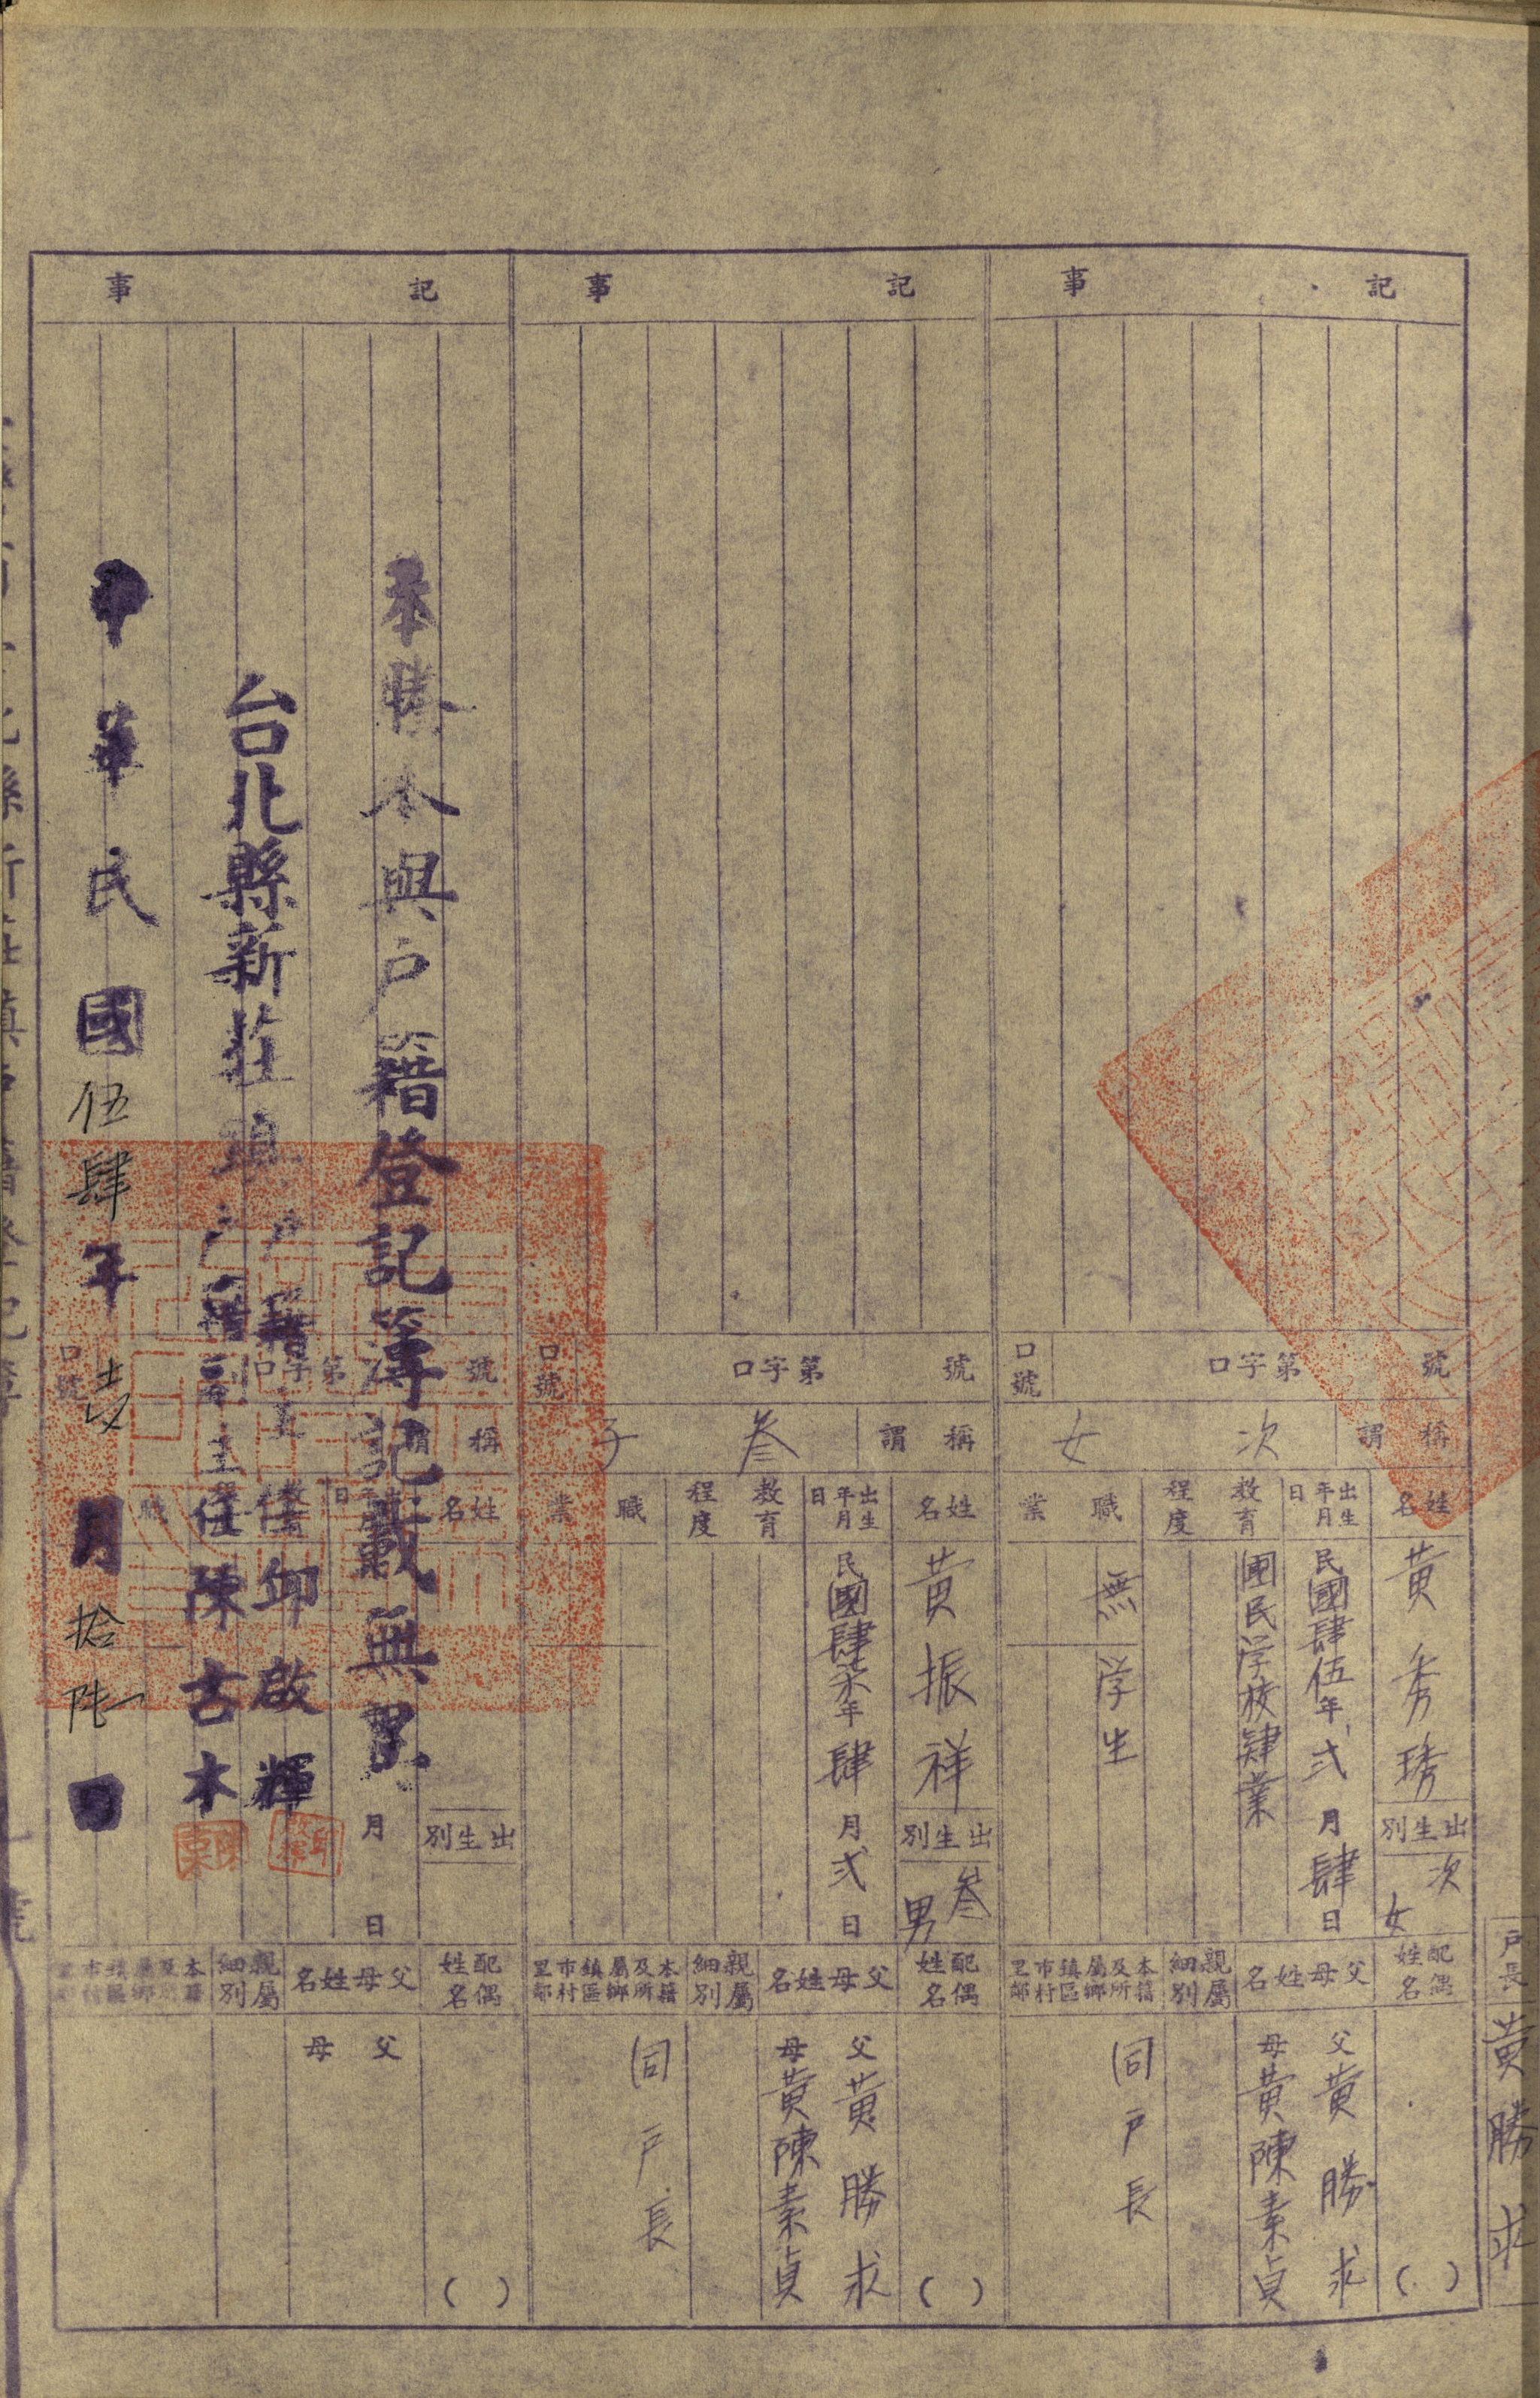 戶長
黃勝求
記事
口號
口字第號
稱謂
次女
姓名
黃秀琇
出生別
次女
出生年月日
民國肆伍年弍月肆日
教育程度
國民学校肄業
職業
無
学生
配偶姓名
( )
父母姓名
父黃勝求
母黃陳素貞
親屬細別
本籍及所屬鄉鎮區市村里鄰
同戶長
記事
口號
口字第號
稱謂
叁子
姓名
黃振祥
出生別
叁男
出生年月日
民國肆柒年肆月弍日
教育程度
職業
配偶姓名
( )
父母姓名
父黃勝求
母黃陳素貞
親屬細別
本籍及所屬鄉鎮區市村里鄰
同戶長
記事
口號
口字第號
稱謂
姓名
出生別
月日
職
配偶姓名
( )
父母姓名
父
母
親屬細別
本籍及所屬鄉鎮區市村里鄰
本謄本與戶籍登記簿記載無異
台北縣新莊鎮
戶籍主任卸啟輝
戶籍副主任陳古木
中華民國伍肆年
月拾陸日